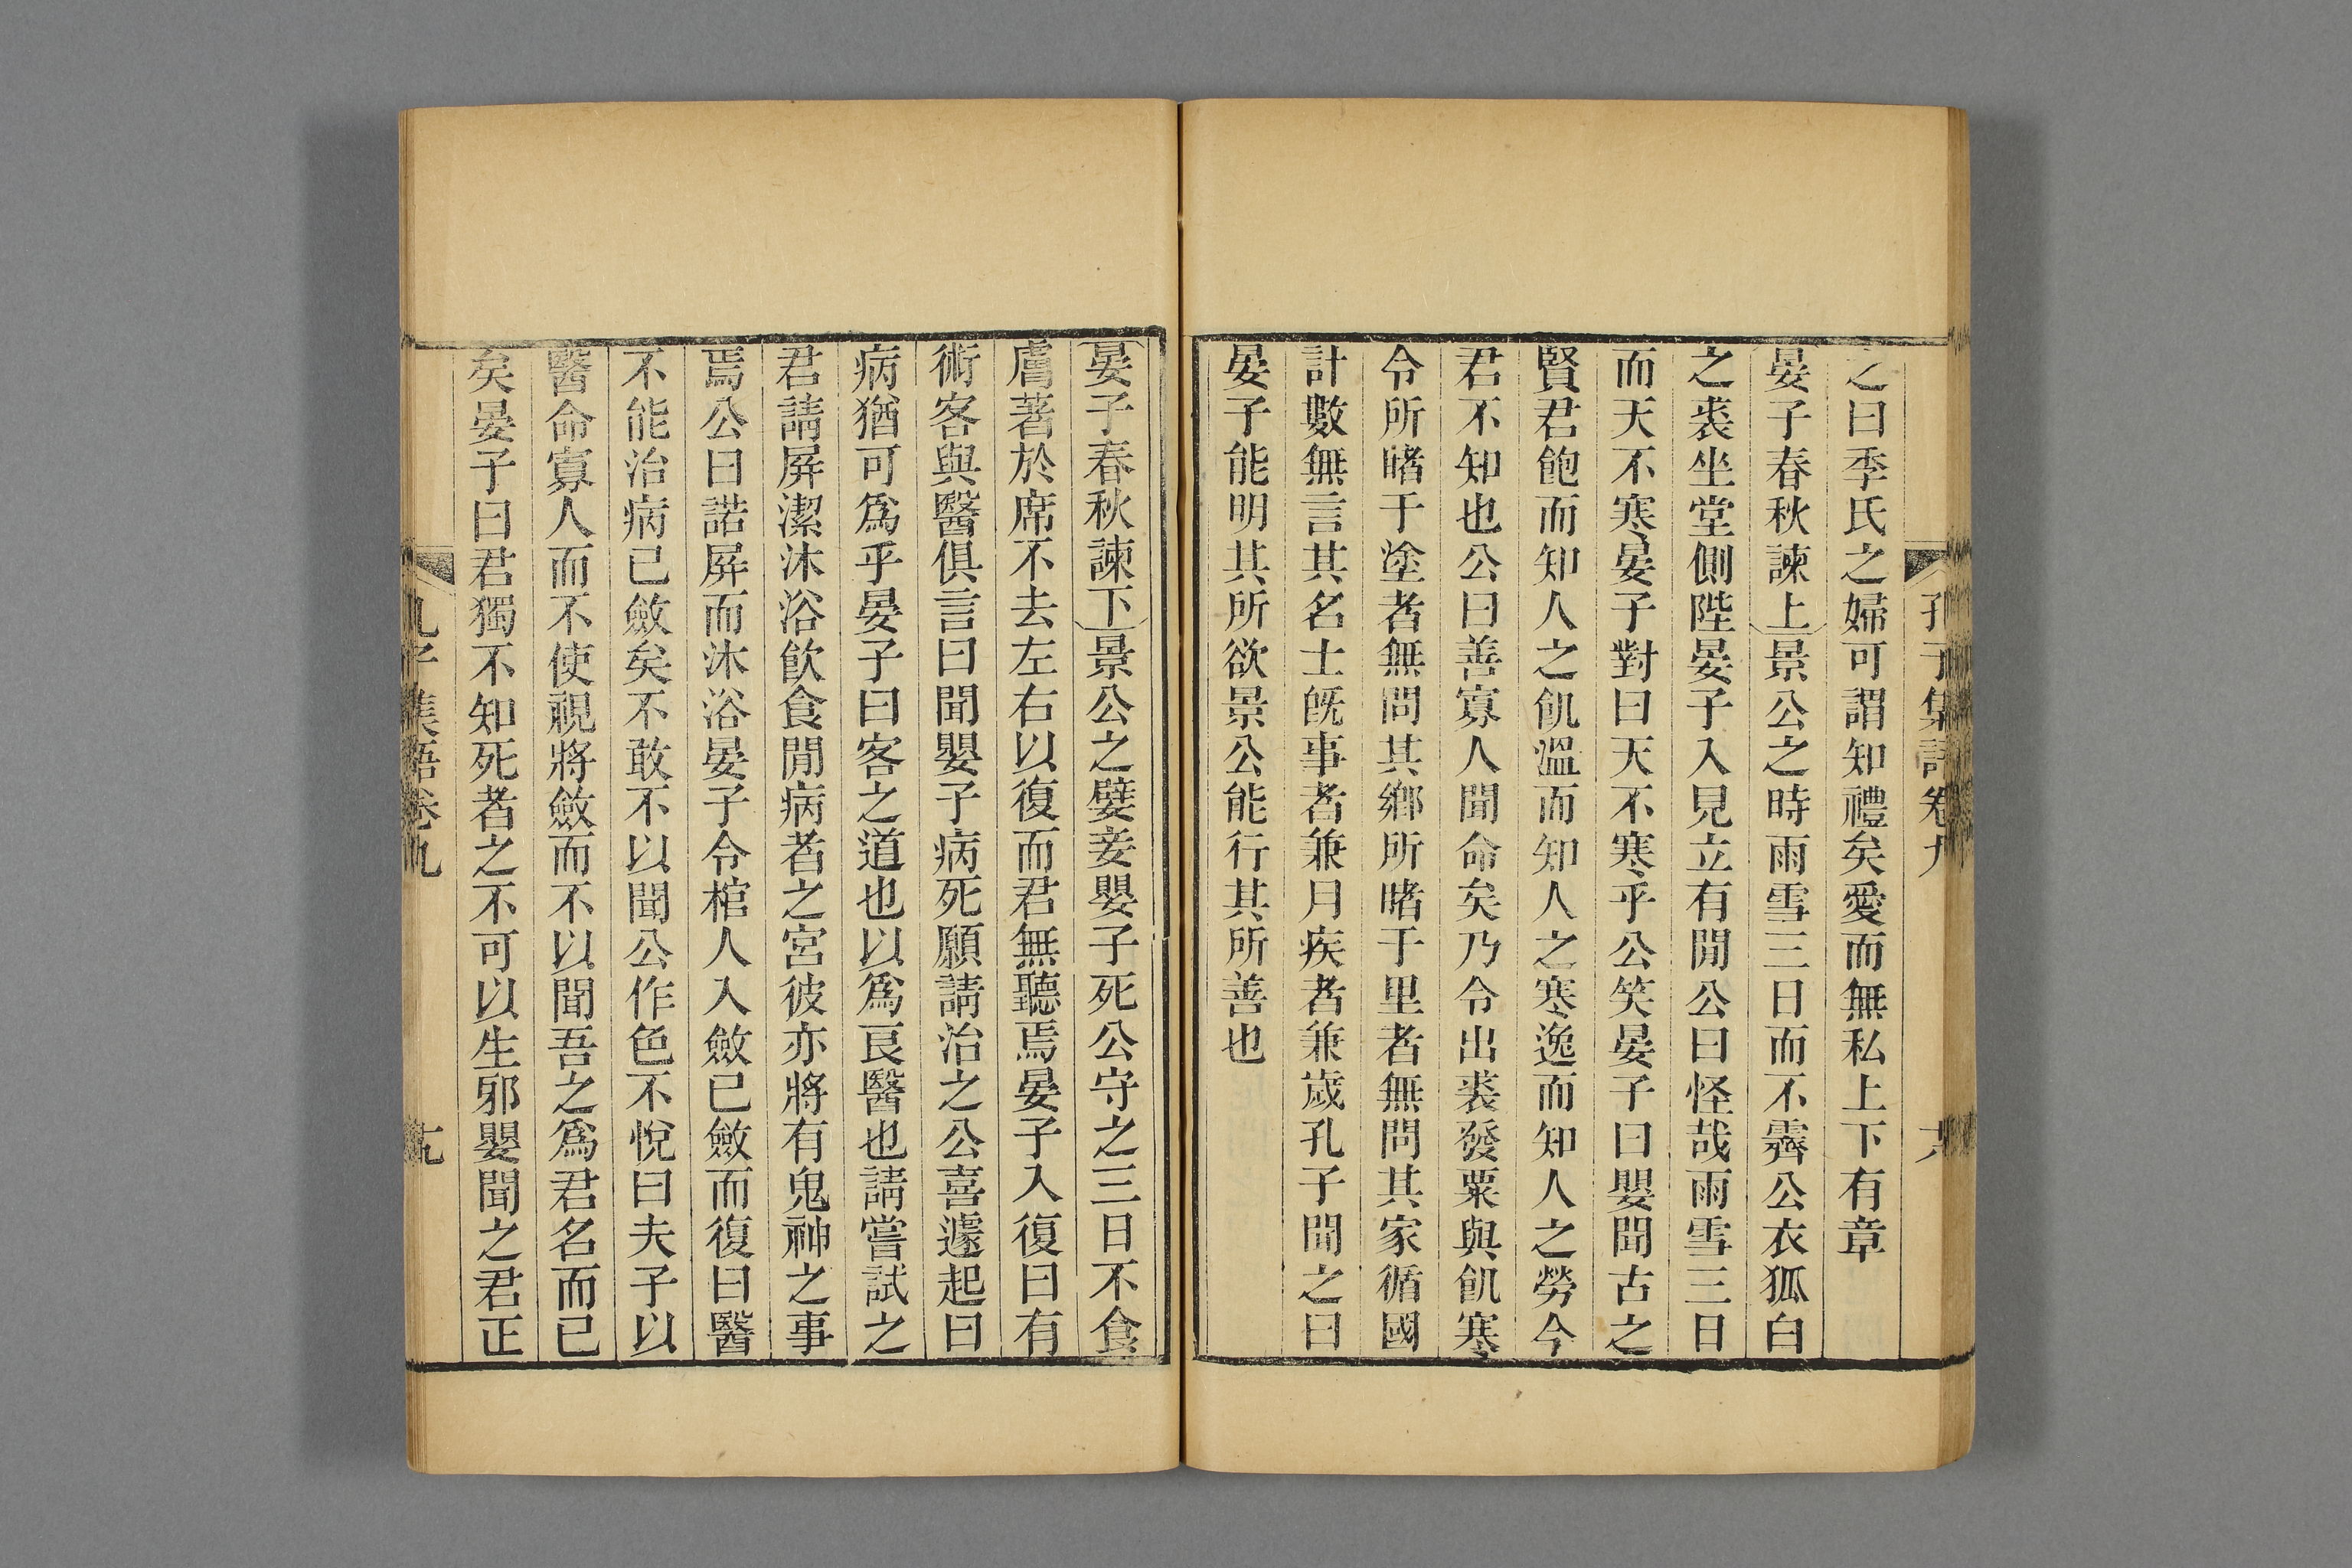 孔子集語卷九
之曰季氏之婦可謂知禮矣愛而無私上下有章
晏子春秋諫上景公之時雨雪三日而不霽公衣狐白
之裘坐堂側陛晏子入見立有閒公曰怪哉雨雪三日
而天不寒晏子對曰天不寒乎公笑晏子曰嬰聞古之
賢君飽而知人之飢溫而知人之寒逸而知人之勞今
君不知也公曰善寡人聞命矣乃令出裘發粟與飢寒
令所睹于塗者無問其鄉所睹于里者無問其家循國
計數無言其名士旣事者兼月疾者兼歲孔子聞之曰
晏子能明其所欲景公能行其所善也
晏子春秋諫下景公之嬖妾嬰子死公守之三日不食
膚著於席不去左右以復而君無聽焉晏子入復曰有
術客與醫俱言曰聞嬰子病死願請治之公喜遽起曰
病猶可爲乎晏子曰客之道也以爲良醫也請嘗試之
君請屏潔沐浴飮食閒病者之宮彼亦將有鬼神之事
焉公曰諾屏而沐浴晏子令棺人入斂已斂而復曰醫
不能治病已斂矣不敢不以聞公作色不悅曰夫子以
醫命寡人而不使視將斂而不以聞吾之爲君名而已
矣晏子曰君獨不知死者之不可以生邪嬰聞之君正
孔子集語卷九